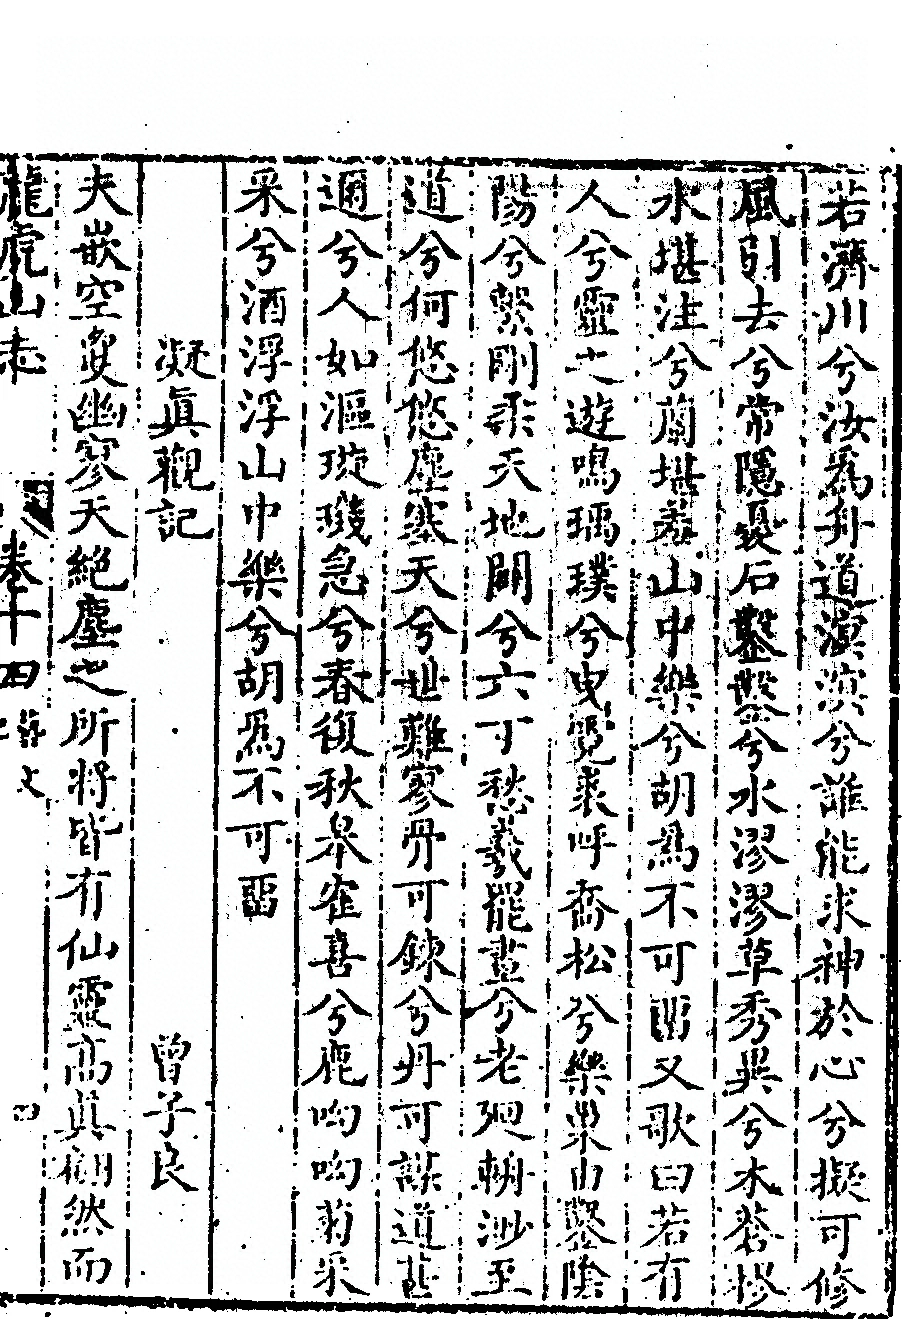 若濟川兮汝爲舟道濵濵兮誰能求神於心兮擬可修
風引去兮常隱憂石鑿鑿兮水漻漻草秀異兮木蒼樛
水堪注兮蘭堪羞山中樂兮胡爲不可留又歌曰若有
人兮靈之遊鳴瑀璞兮曳霓裘呼喬松兮樂巢由鑿陰
陽兮繫剛柔天地闢兮六丁愁羲罷畫兮老廻輈渺至
道兮何悠悠塵塞天兮世難寥丹可鍊兮丹可謀道甚
邇兮人如漚璇璣急兮春復秋皋雀喜兮鹿呦呦菊采
采兮酒浮浮山中樂兮胡爲不可畱
凝眞觀記 曾子良
夫嵌空窅幽寥天絕塵之所將皆有仙靈高眞翩然而
龍虎山志 卷十四 藝文 四